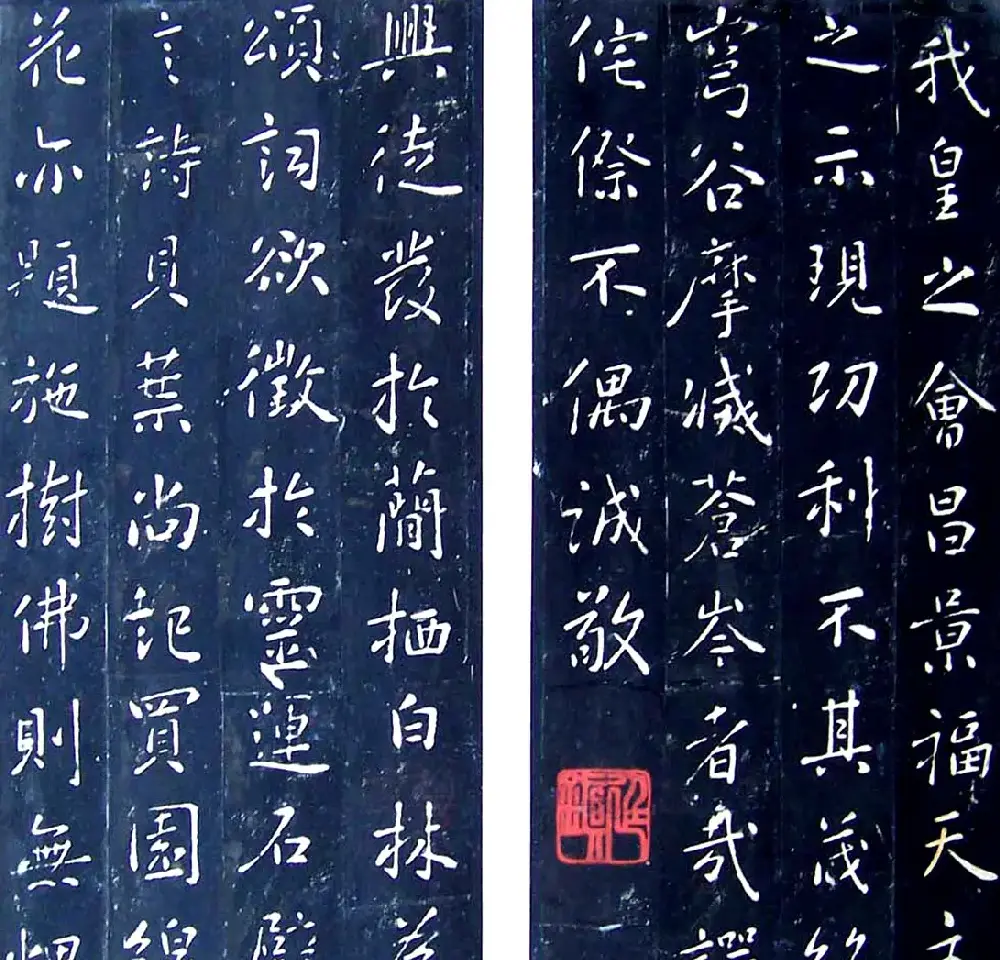 我皇之會昌景福天文
之示現功利不其茂
穹谷摩滅蒼岑者哉
侘傺不偶誠敬
興徒發於蘭栖白林
頌詞欲徵於靈運石壁
言詩貝葉尚記買園
花亦題施樹佛則無煙